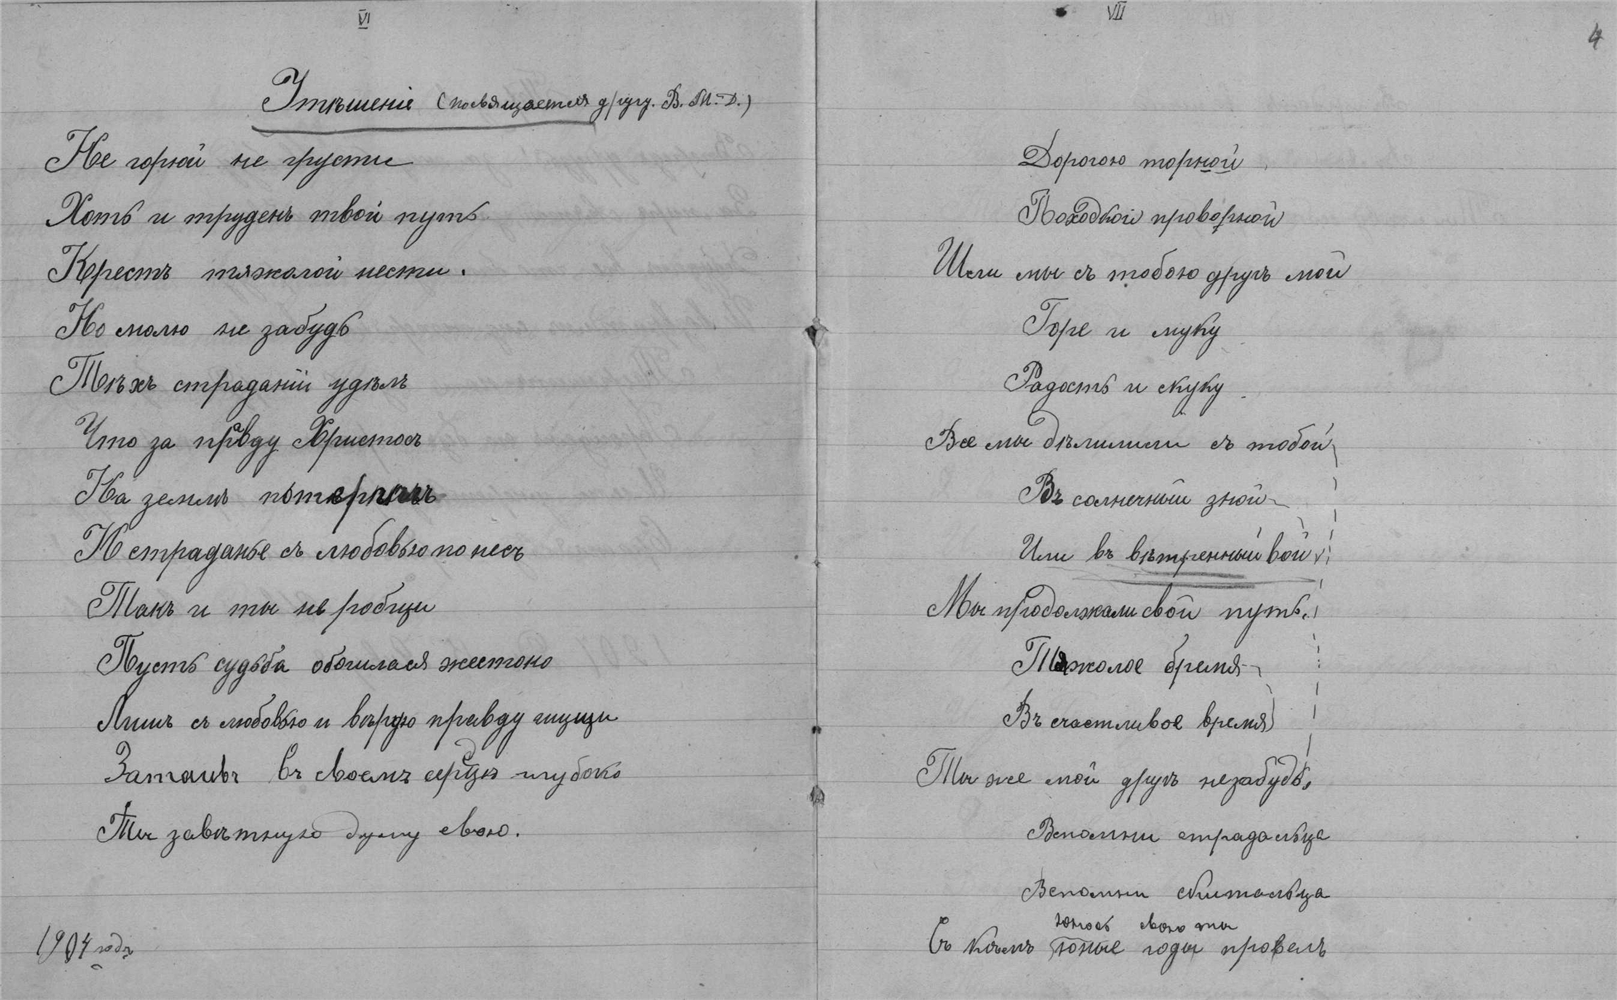 VI
Утѣшеніе (посвящается другу. В. М.-Д.)
Не горюй не грусти
Хоть и труденъ твой путь
Крестъ тяжолой нести.
Но молю не забудь
Тѣхъ страданій удѣлъ
Что за правду Христосъ
На землѣ потерпѣлъ
И страданье съ любовью понесъ
Такъ и ты не робщи
Пусть судьба обошлася жестоко
Лишь съ любовью и вѣрую правду ищищи
Затаивъ въ своемъ сердцѣ глубоко
Ты завѣтную думу свою.
1904 годъ
VII
4
Дорогою торной
Походкой проворной
Шли мы съ тобою другъ мой
Горе и муку
Радость и скуку
Все мы дѣлилили съ тобой
Въ солнечный зной
Или въ вѣтренный вой
Мы продолжали свой путь.
Тяжолое бремя
Въ счастливое время
Ты же мой другъ незабудь,
Вспомни страдальца
Вспомни скитальца
юность свою ты
Съ кѣмъ юные годы провелъ